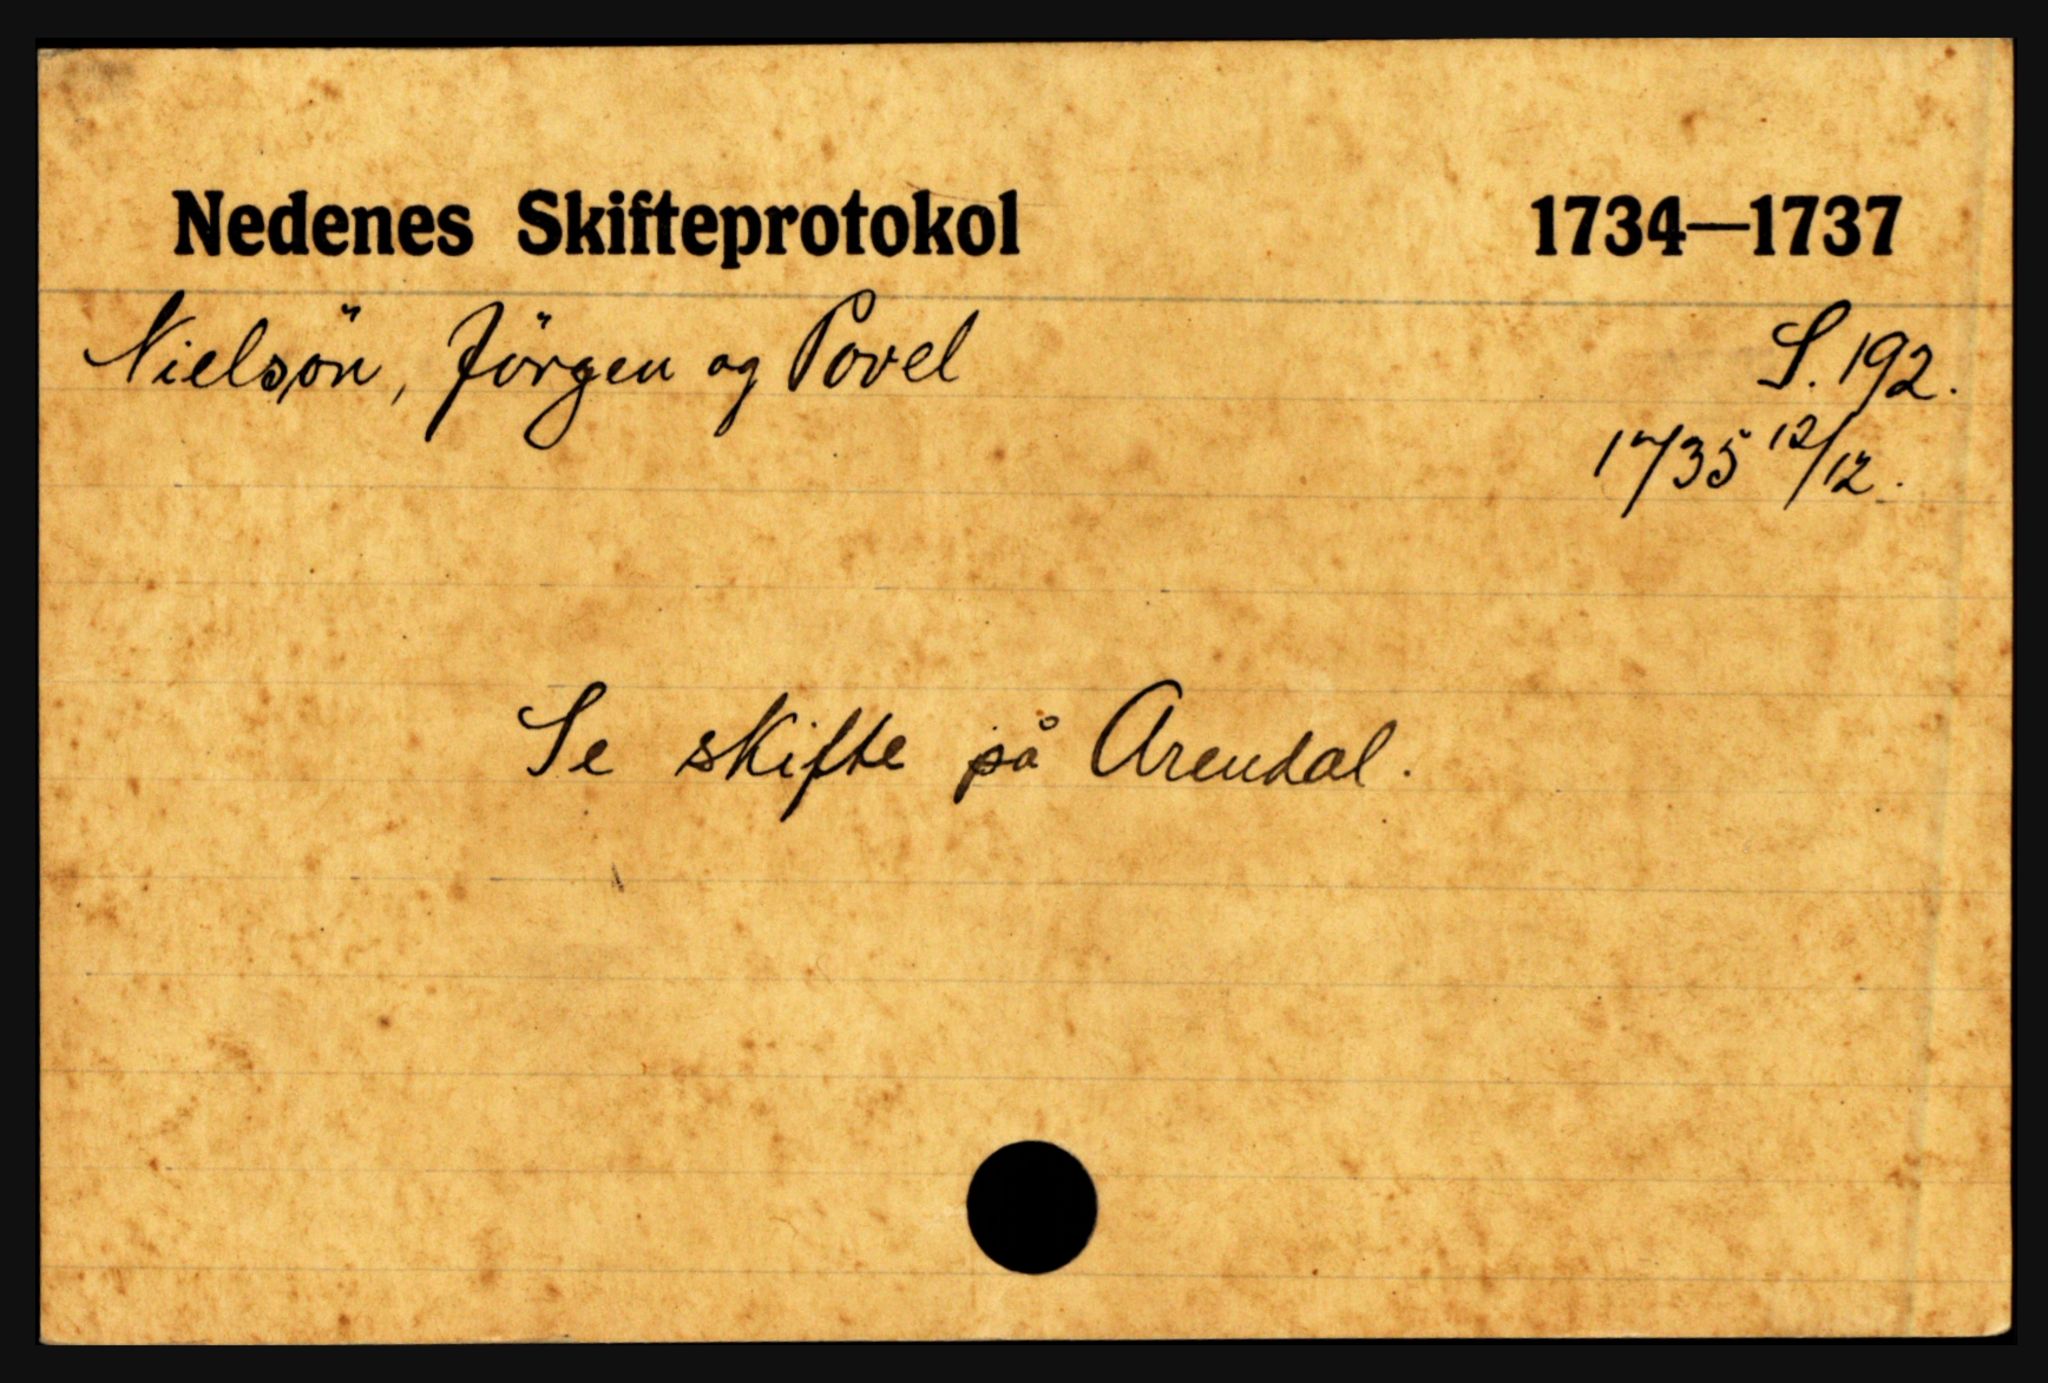 Nedenes Skifteprotokol 1734—1737
Nielsön, Jörgen og Povel S. 192.
1735 12/12.
Se skifte på Arendal.